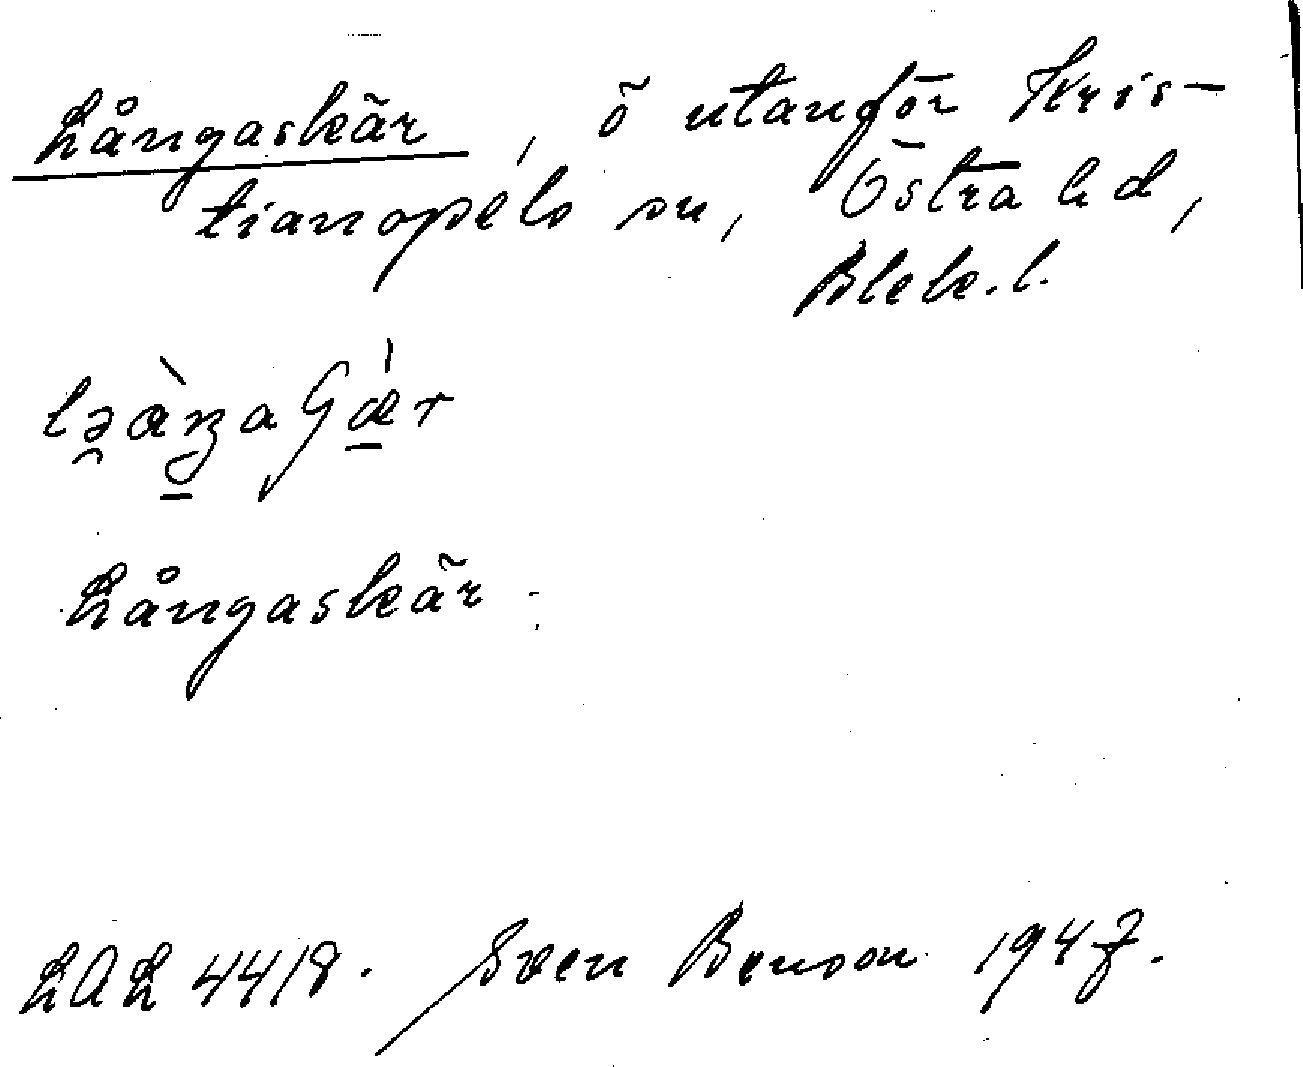 Långaskär, ö utanför Kris-
tianopels sn, Östra hd,
Blek. l.
Långaskär
LAL 4418. Sven Benson 1947.